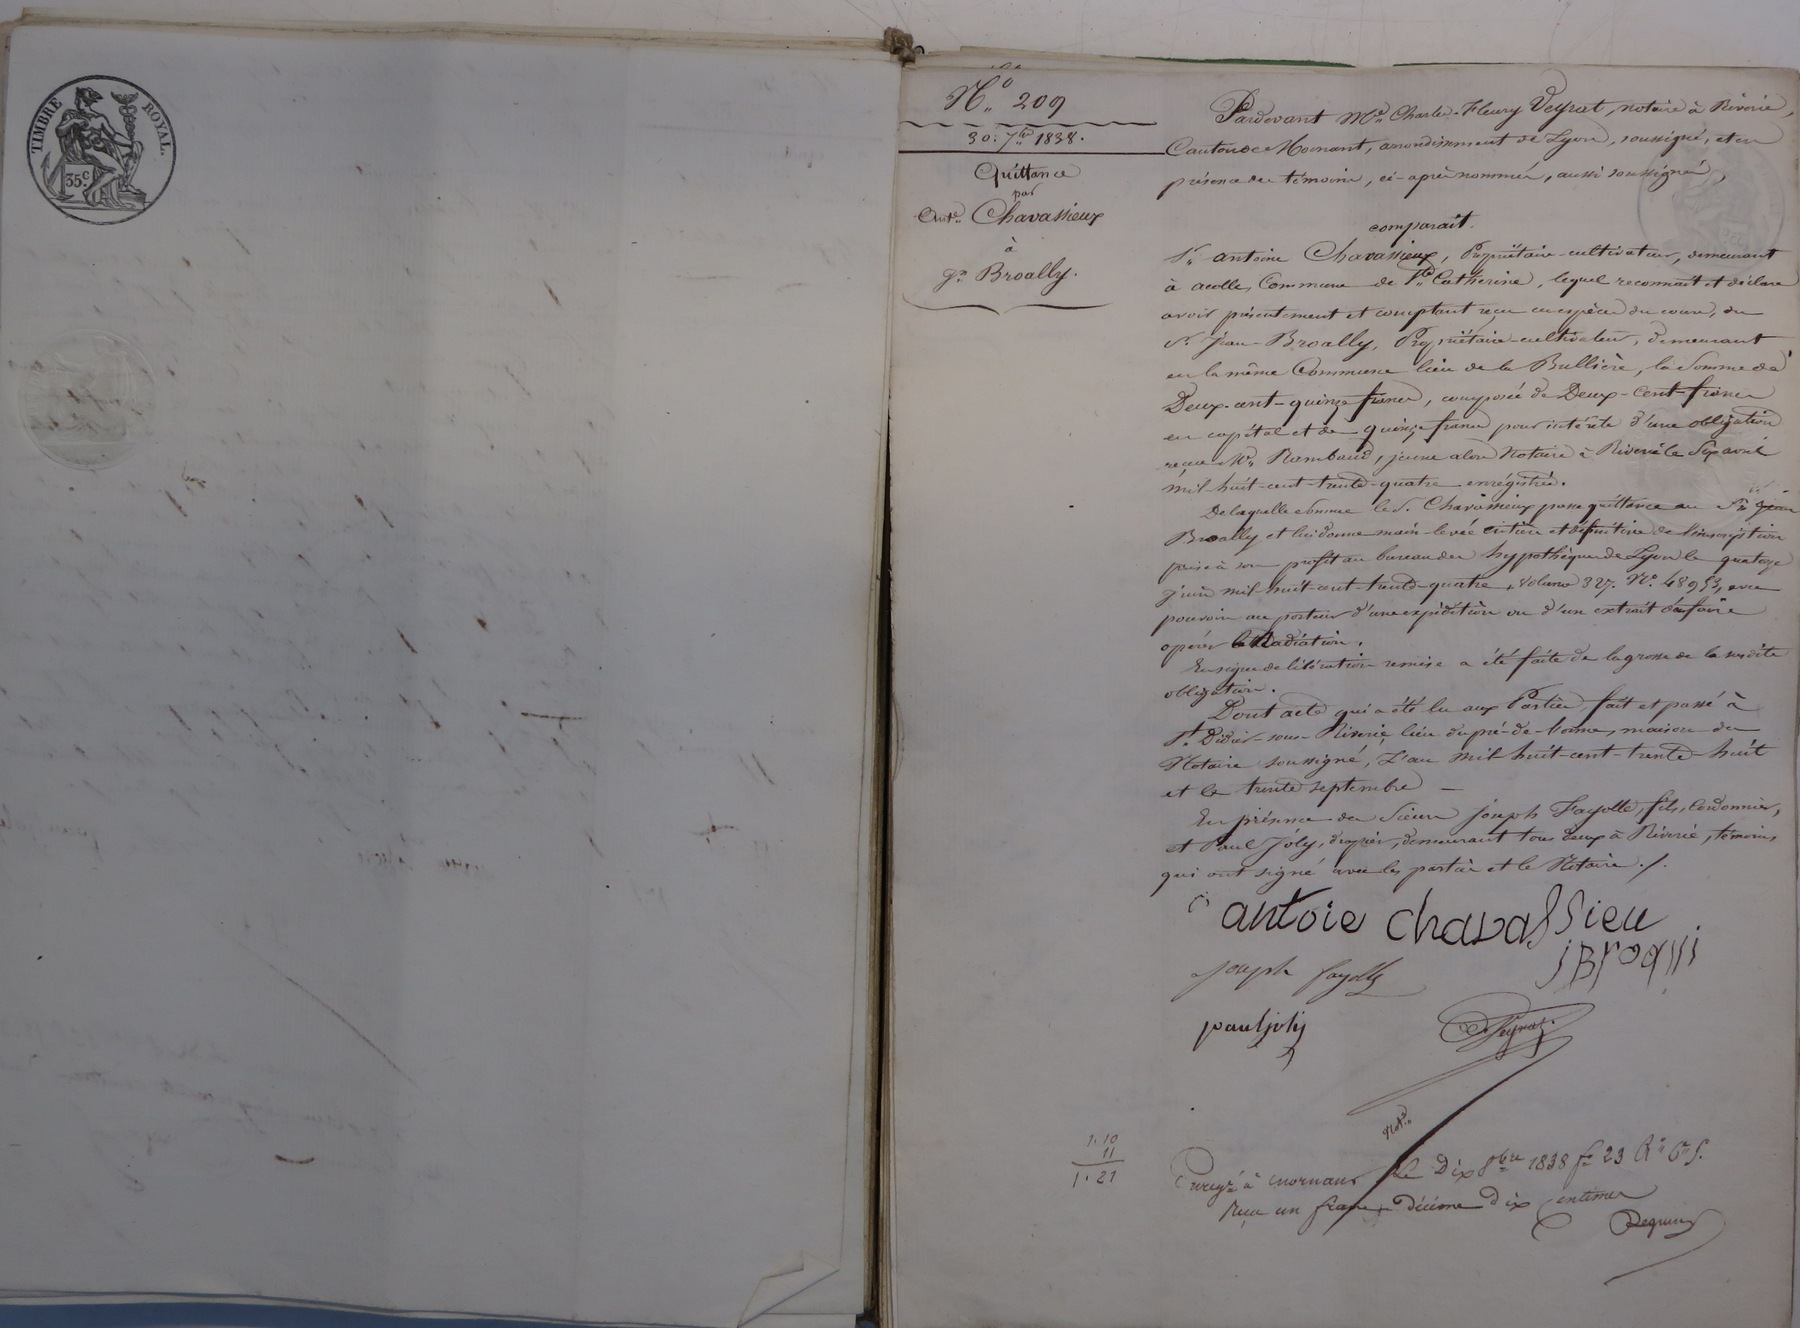 TIMBRE ROYAL.
35.c
N.o 209
30: 7.bre 1838.
Quittance
par
Ant.e Chavassieux
à
J.n Broally.
Pardevant M.e Charles-Fleury Veyrat, notaire à Riverie,
Canton de Mornant, arrondissement de Lyon, soussigné, et en
présence des témoins, ci-après nommés, aussi soussignés,
comparait.
S.r antoine Chavassieux, Propriétaire-cultivateur, demeurant
à acolle, Commune de S.te Catherine, lequel reconnait et déclare
avoir présentement et comptant reçu en espèces du cours, du
S. Jean Broally, Propriétaire-cultivateur, demeurant
en la même Commune lieu de la Bullière, la Somme de
Deux-cent-quinze francs, composée de Deux-Cent-francs
en capital et de quinze francs pour intérêts d'une obligation
reçue M.e Rambaud, jeune alors Notaire à Riverie le Six avril
mil huit-cent-trente-quatre enrégistrée.
De laquelle somme le S. Chavassieux passe quittance au S.r Jean
Broally, et lui donne main-levée entière et définitive de l'inscription
prise à son profit au bureau des hypothèques de Lyon le quatorze
juin mil-huit-cent trente-quatre, volume 327. N.o 48953, avec
pouvoir au porteur d'une expédition ou d'un extrait d'en faire
opérer la Radiation.
En signe de libération remise a été faite de la grosse de la susdite
obligation.
Dont acte qui a été lu aux Parties, fait et passé à
S.t Didier-sous-Riverie, lieu du pré-de-lorme, maison du
Notaire soussigné, L'an Mil huit-cent-trente-huit
et le trente septembre —
En présence des Sieurs joseph Fayolle, fils, Cordonnier,
et Paul Joly, drapier, demeurant tous deux à Riverie, témoins,
qui ont signé avec les parties et le Notaire ./.
antoie chavassieu
jBroalli
joseph fayolle
paul joly
Veyrat
Not.re
1.10
11
1.21
Enregé à mornant Le Dix 8bre 1838 f.o 23 R.o C.e 5.
Reçu un franc décime dix Centimes